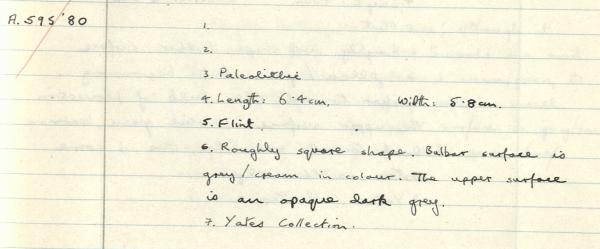 A.595'80
1.
2.
3. Paleolithic
4. Length: 6.4cm. Width: 5.8cm.
5. Flint.
6. Roughly square shape. Balbar surface is
grey/cream in colour. The upper surface
is an opaque dark grey.
7. Yates Collection.